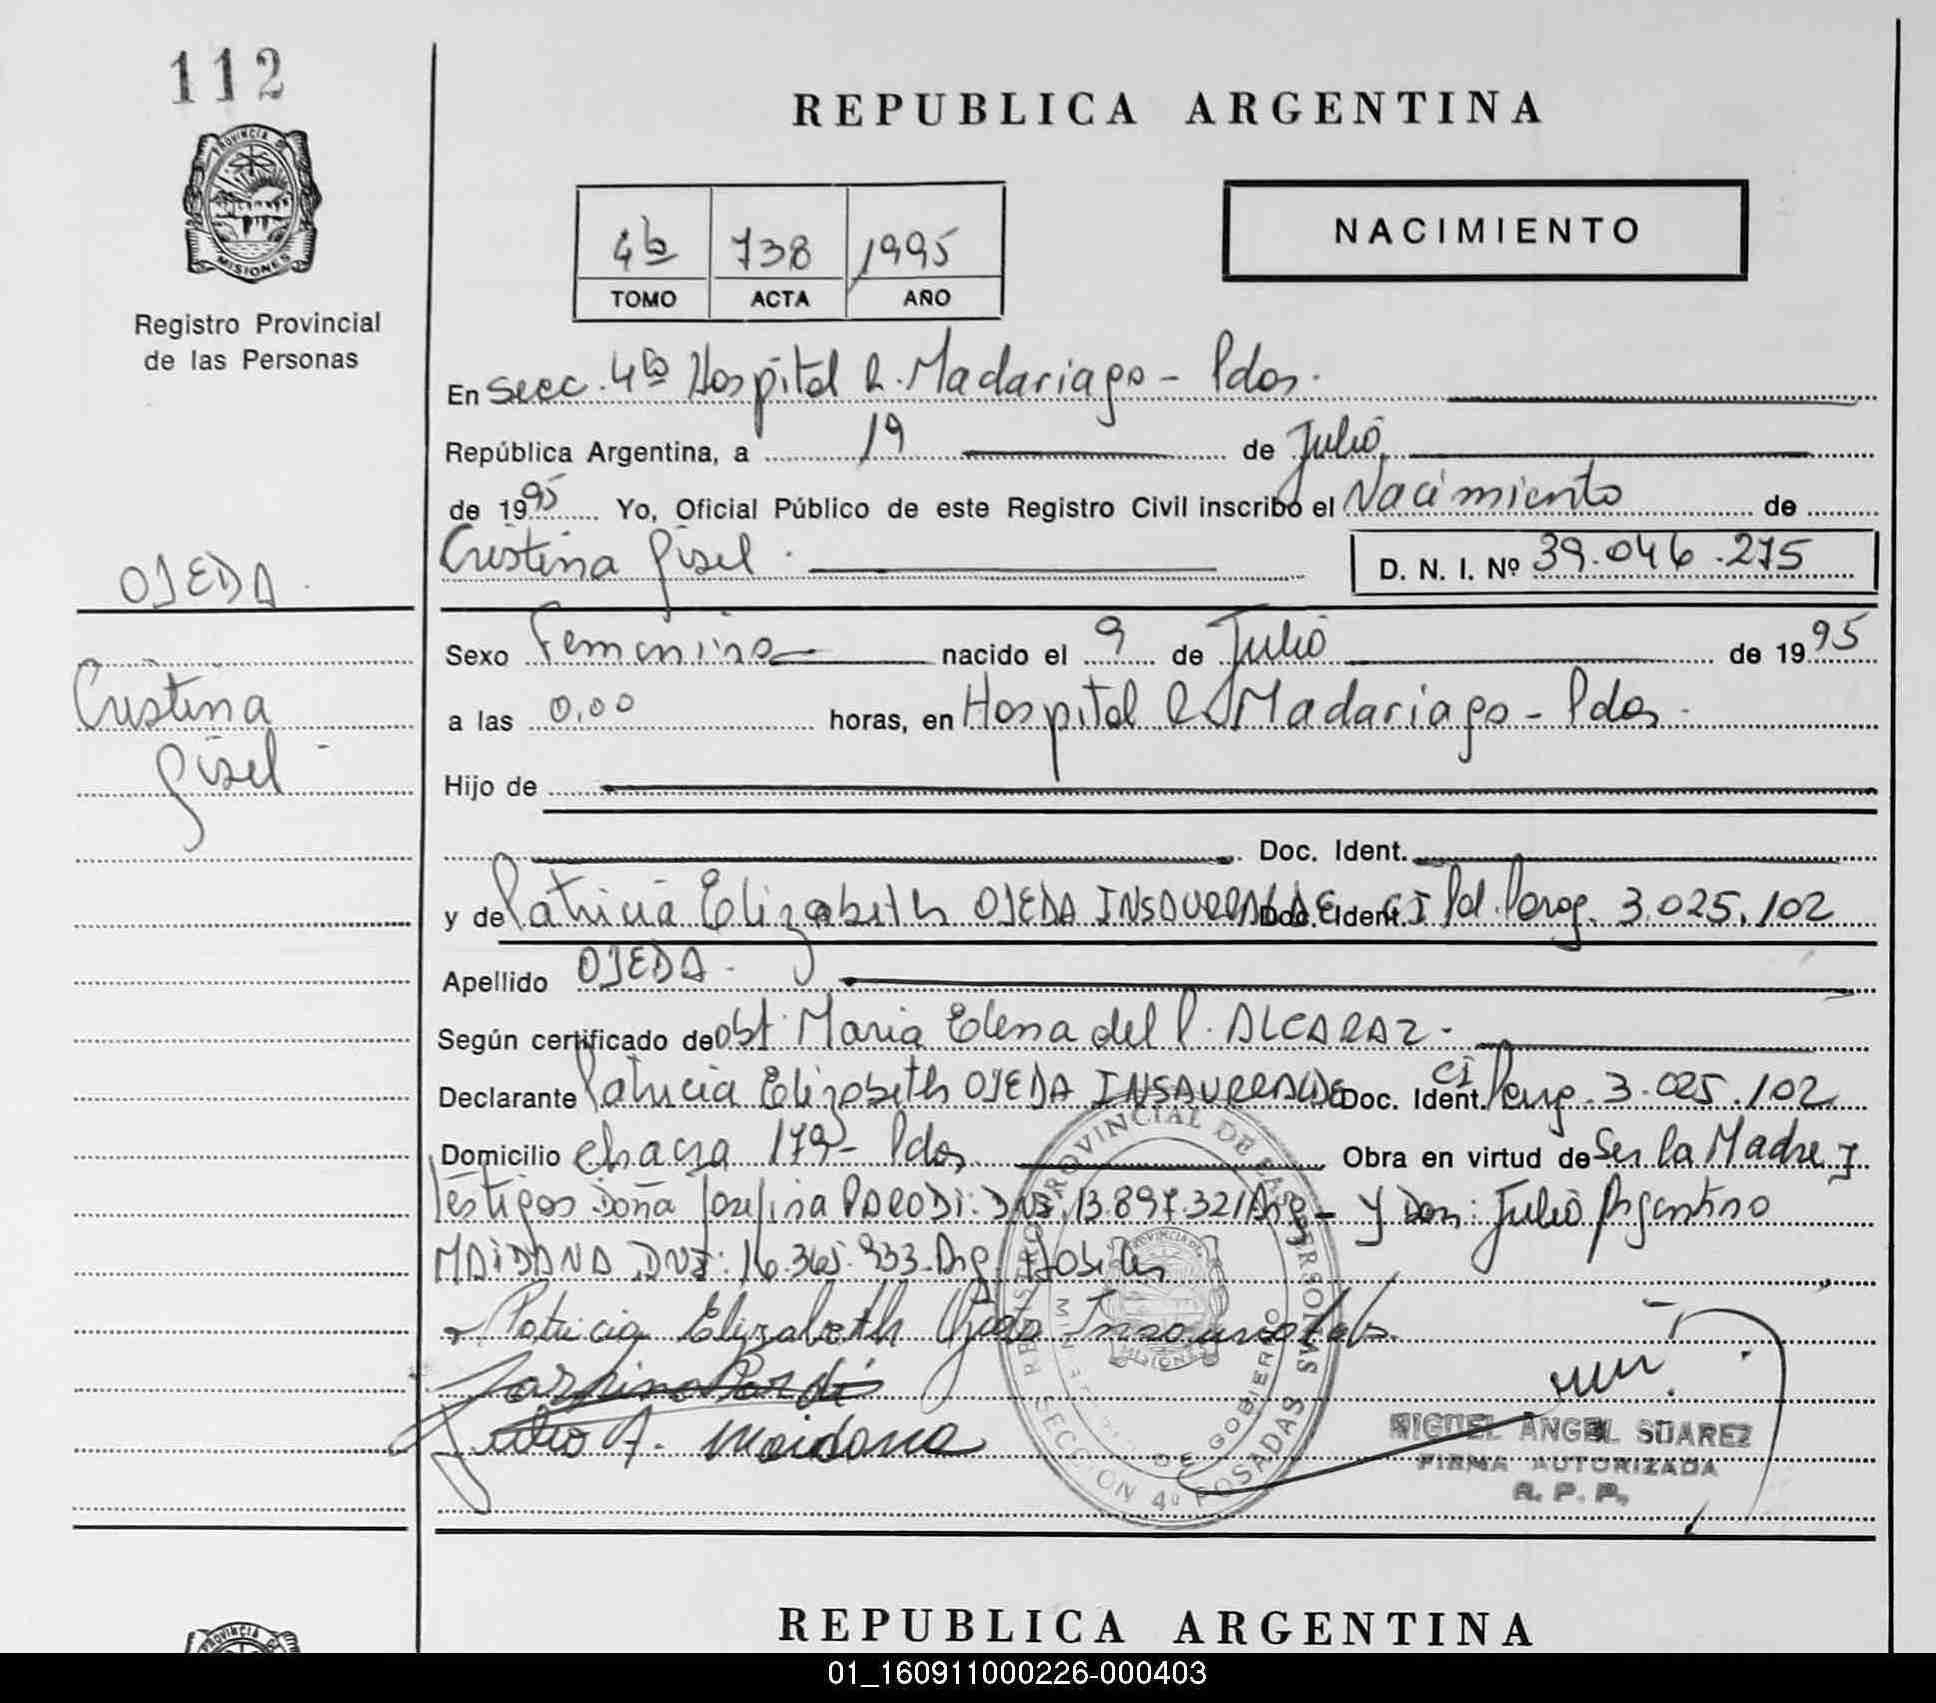 112
PROVINCIA DE
MISIONES
Registro Provincial
de las Personas
OJEDA.
Cristina
Gisel -
REPUBLICA ARGENTINA
4ta 738 1995
TOMO ACTA AÑO
NACIMIENTO
En Secc. 4ta Hospital R. Madariaga - Pdas.
República Argentina, a 19 de Julio
de 1995 Yo, Oficial Público de este Registro Civil inscribo el Nacimiento de
Cristina Gisel. D. N. I. Nº 39.046.275
Sexo Femenino nacido el 9 de Julio de 1995
a las 0,00 horas, en Hospital R. Madariaga - Pdas.
Hijo de
Doc. Ident.
y de Patricia Elizabeth OJEDA INSAURRALDE Doc. Ident. CI Pol. Parag. 3.025.102
Apellido OJEDA.
Según certificado de obst. Maria Elena del P. ALCARAZ.
Declarante Patricia Elizabeth OJEDA INSAURRALDE Doc. Ident. CI Parag. 3.025.102
Domicilio chacra 179 - Pdas. Obra en virtud de Ser la Madre y
Testigos Doña Josefina PARODI: DNI. 13.897.321 Arg - Y Don: Julio Argentino
MAIDANA DNI: 16.365.933. Arg.
Patricia Elizabeth Ojeda Insaurralde
Josefina Parodi
Julio A. Maidana
REGISTRO PROVINCIAL DE LAS PERSONAS
SECCION 4º POSADAS
DE GOBIERNO
PROVINCIA DE
MISIONES
MIGUEL ANGEL SUAREZ
FIRMA AUTORIZADA
R. P. P.
PROVINCIA
REPUBLICA ARGENTINA
01_160911000226-000403